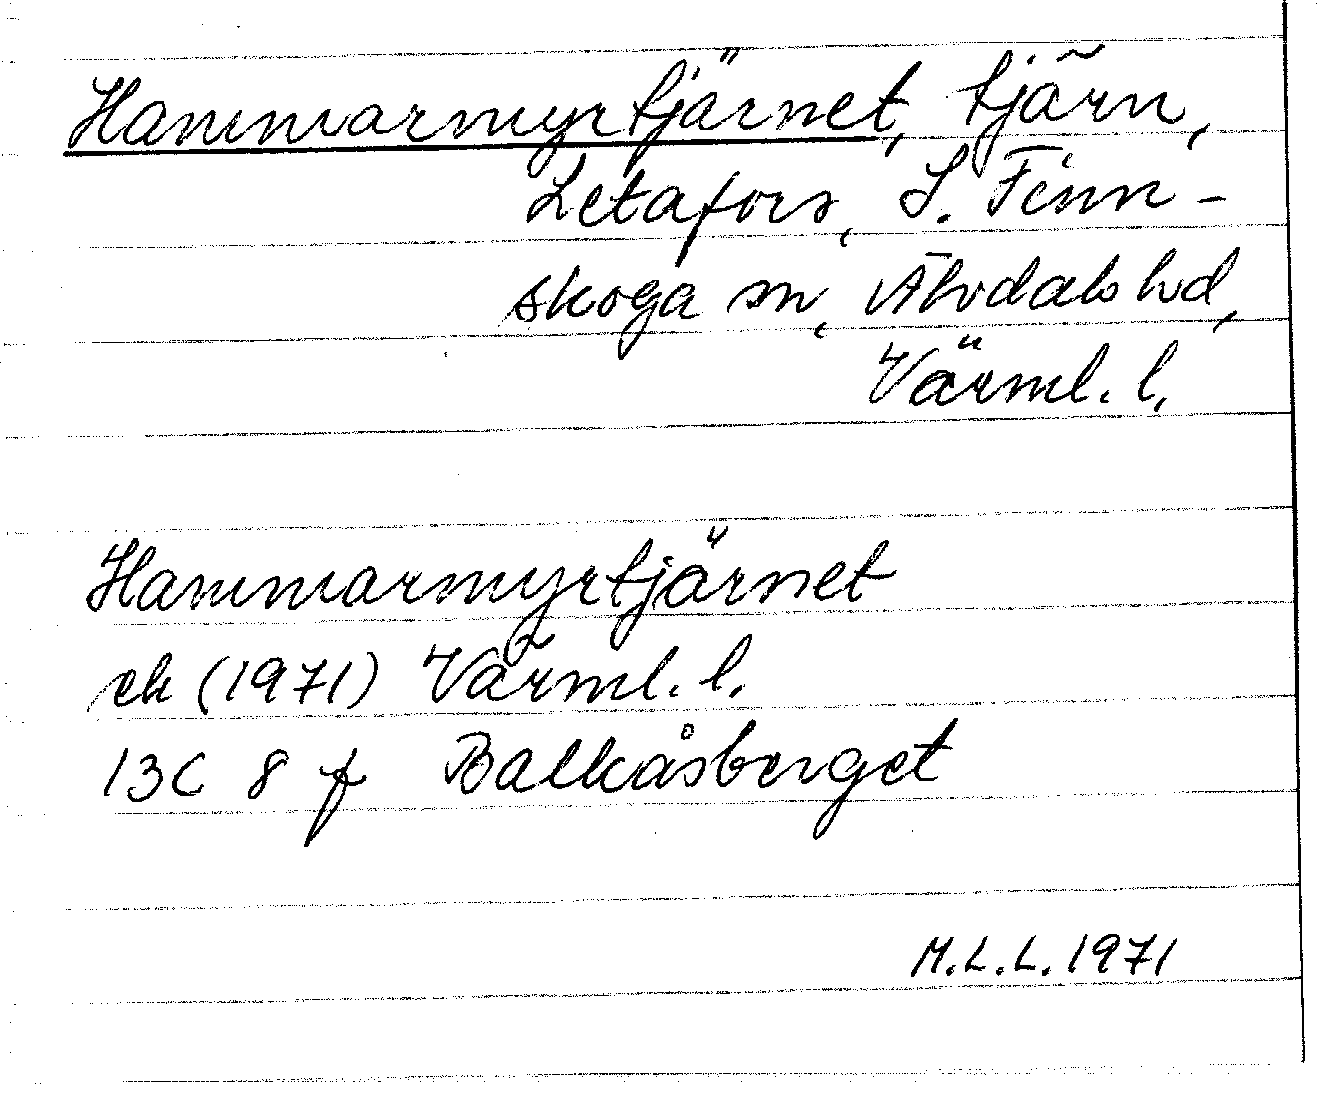 Hammarmyrtjärnet, tjärn,
Letafors, S. Finn-
skoga sn, Älvdals hd,
Värml. l.
Hammarmyrtjärnet
ek (1971) Värml. l.
13C 8 f Balkåsberget
M.L.L. 1971